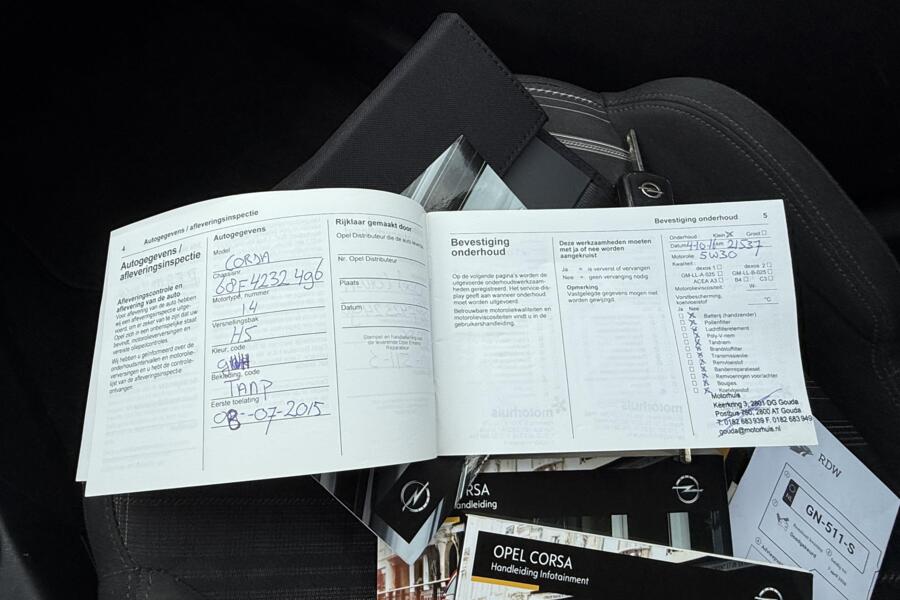 4 Autogegevens / afleveringsinspectie
Autogegevens /
afleveringsinspectie
Aflevering­scontrole en
aflevering van de auto
Voor aflevering van de auto hebben
wij een afleveringsinspectie uitge-
voerd, om er zeker van te zijn dat uw
Opel zich in een onberispelijke staat
bevindt, motorolieverversingen en
vereiste oliepeilcontroles.
Wij hebben u geïnformeerd over de
onderhoudsintervallen en motorolie-
verversingen en u hebt de controle-
lijst van de afleveringsinspectie
ontvangen.
Autogegevens
Model
CORSA
Chassisnr.
68F4232496
Motortype, nummer
14
Versnellingsbak
H5
Kleur, code
Bekleding, code
TANP
Eerste toelating
08-07-2015
Rijklaar gemaakt door
Opel Distributeur die de auto leverde
Nr. Opel Distributeur
Plaats
Datum
Stempel en handtekening van
de leverende Opel Erkend
Reparateur
Bevestiging onderhoud 5
Bevestiging
onderhoud
Op de volgende pagina's worden de
uitgevoerde onderhoudswerkzaam-
heden geregistreerd. Het service-dis-
play geeft aan wanneer onderhoud
moet worden uitgevoerd.
Betrouwbare motoroliekwaliteiten en
motorolieviscositeiten vindt u in de
gebruikershandleiding.
Deze werkzaamheden moeten
met ja of nee worden
aangekruist
Ja = is ververst of vervangen
Nee = geen vervanging nodig
Opmerking
Vastgelegde gegevens mogen niet
worden gewijzigd.
Onderhoud Klein Groot
Datum 4-10-16 km 21537
Motorolie 5W30
Kwaliteit:
dexos 1 dexos 2
GM-LL-A-025 GM-LL-B-025
ACEA A3 B4 C3
Motorolieviscositeit: W-
Vorstbescherming,
koelvloeistof °C
Ja Nee
Batterij (handzender)
Pollenfilter
Luchtfilterelement
Poly-V-riem
Tandriem
Brandstoffilter
Transmissieolie
Remvloeistof
Bandenreparatieset
Remvoeringen voor/achter
Bougies
Koelvloeistof
Motorhuis
Keerkring 3, 2801 DG Gouda
Postbus 790, 2800 AT Gouda
T. 0182 683 939 F. 0182 683 949
gouda@motorhuis.nl
RSA
andleiding
OPEL CORSA
Handleiding Infotainment
RDW
NL
GN-511-S
Goedgekeurd